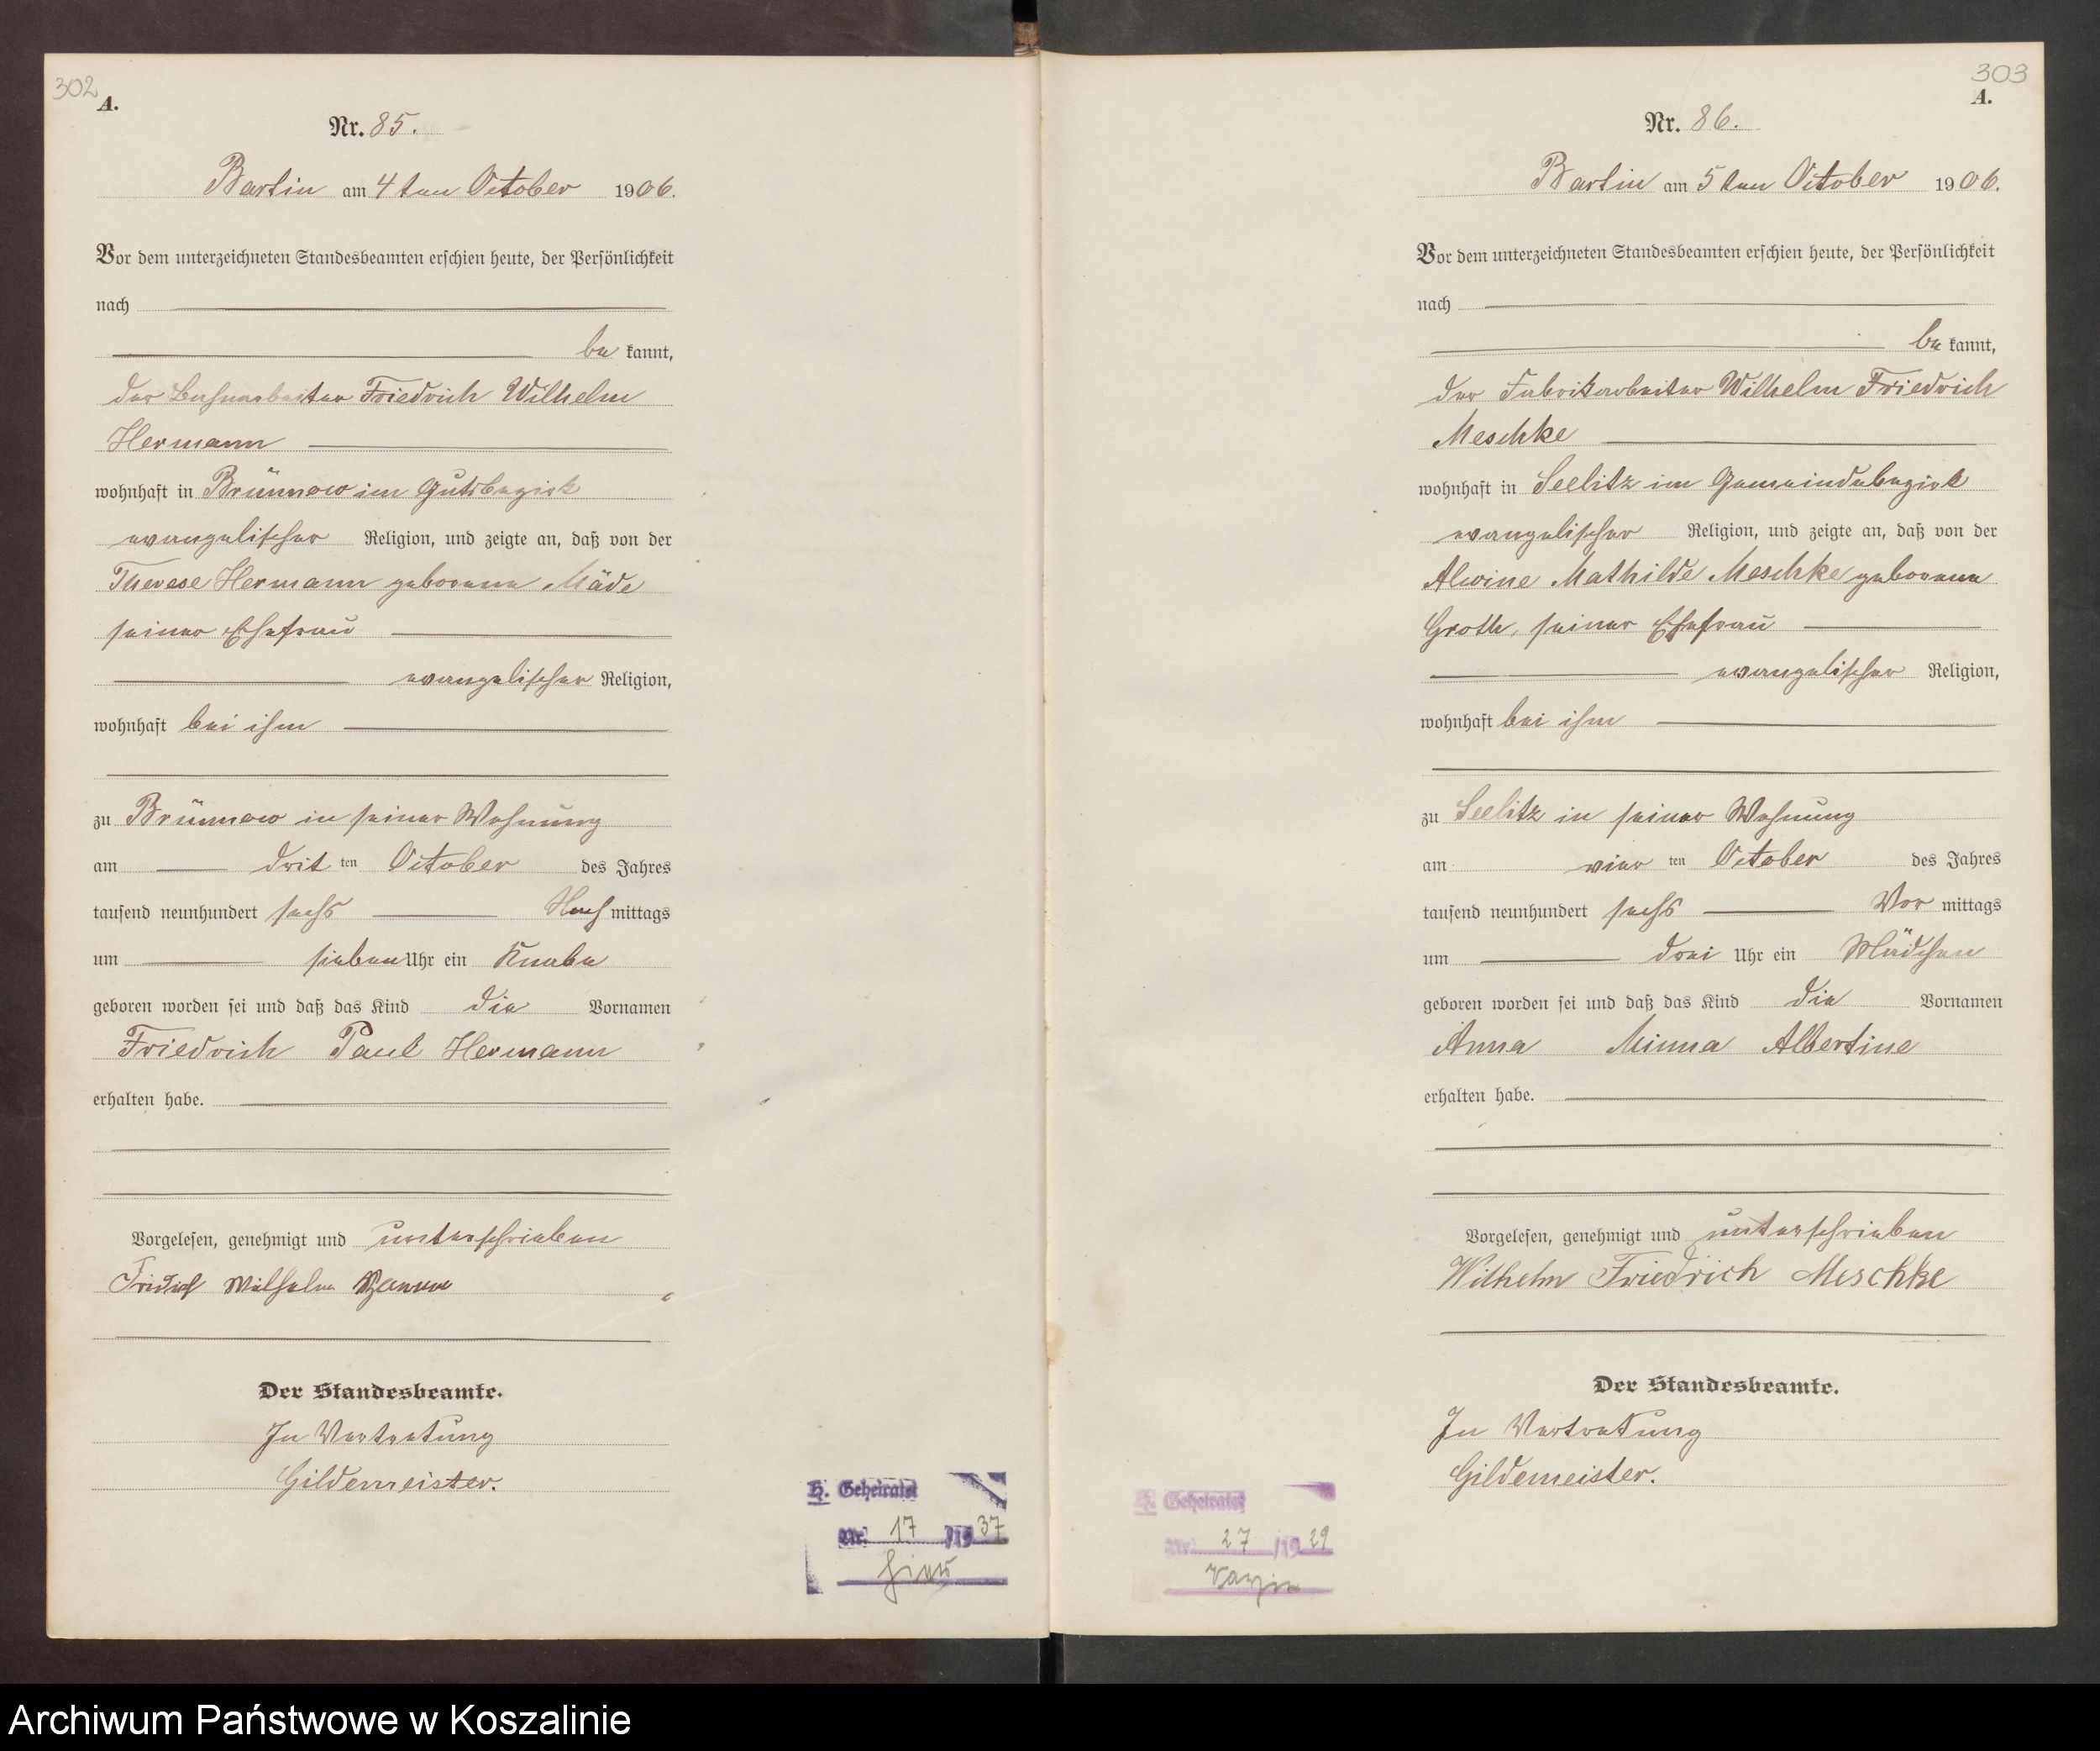 302
A.
Nr. 85.
Bartin am 4 ten October 1906.
Vor dem unterzeichneten Standesbeamten erschien heute, der Persönlichkeit
nach
be kannt,
der Bahnarbeiter Friedrich Wilhelm
Hermann
wohnhaft in Brünnow im Gutsbezirk
evangelischer Religion, und zeigte an, daß von der
Therese Hermann geborene Mäde
seiner Ehefrau
evangelischer Religion,
wohnhaft bei ihm
zu Brünnow in seiner Wohnung
am drit ten October des Jahres
tausend neunhundert sechs Nach mittags
um sieben Uhr ein Knabe
geboren worden sei und daß das Kind die Vornamen
Friedrich Paul Hermann
erhalten habe.
Vorgelesen, genehmigt und unterschrieben
Wilhelm
Der Standesbeamte.
In Vertretung
Gildemeister.
H. Geheiratet
Nr. 17 /1937
303
A.
Nr. 86.
Bartin am 5 ten October 1906.
Vor dem unterzeichneten Standesbeamten erschien heute, der Persönlichkeit
nach
be kannt,
der Fabrikarbeiter Wilhelm Friedrich
Meschke
wohnhaft in Seelitz im Gemeindebezirk
evangelischer Religion, und zeigte an, daß von der
Alwine Mathilde Meschke geborene
Groth, seiner Ehefrau
evangelischer Religion,
wohnhaft bei ihm
zu Seelitz in seiner Wohnung
am vier ten October des Jahres
tausend neunhundert sechs Vor mittags
um drei Uhr ein Mädchen
geboren worden sei und daß das Kind die Vornamen
Anna Minna Albertine
erhalten habe.
Vorgelesen, genehmigt und unterschrieben
Wilhelm Friedrich Meschke
Der Standesbeamte.
In Vertretung
Gildemeister.
H. Geheiratet
Nr. 27 /1929
Varzin
Archiwum Państwowe w Koszalinie